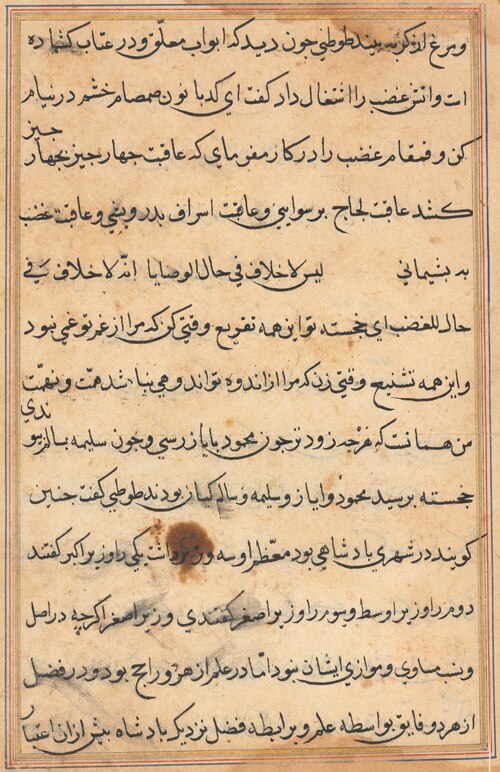 و مرغ لذکریه بیند طوطی چون دید که ابواب معلق و در عتاب کشاده
است و اتش غضب را اشتغال داد گفت ای کدبانو صمصام خشم در نیام
کن و قمقام غضب را در کار مفرمای که عاقبت چهار چیز بچهار چیز
کشد عاقبت لجاج برسوایی و عاقبت اسراف بدرویشی و عاقبت غضب
به پشیمانی لیس لاخلاف فی حال الوصایا انه لاخلاف فی
حال للغضب ای خجسته تو این همه تقریع وقتی کن که مرا از غم تو غمی نبود
و این همه تشنیع وقتی زن که مرا از اندوه تو اندوهی نباشد همت و نهمت
من همانست که هرچه زودتر چون محمود بایاز رسی و چون سلیمه بسالم پیوندی
خجسته برسید محمود و ایاز و سلیمه و سالم کیان بودند طوطی گفت چنین
کویند در شهری بادشاهی بود معظم او سه وزیر داشت یکی را وزیر اکبر گفتند
دوم را وزیر اوسط و سوم را وزیر اصغر گفتندی وزیر اصغر اکرچه در اصل
و نسب مساوی و موازی ایشان نبود اما در علم از هردو راجح بود و در فضل
از هردو فایق بواسطه علم و برابطه فضل نزدیک بادشاه بیش از ان اعتبار